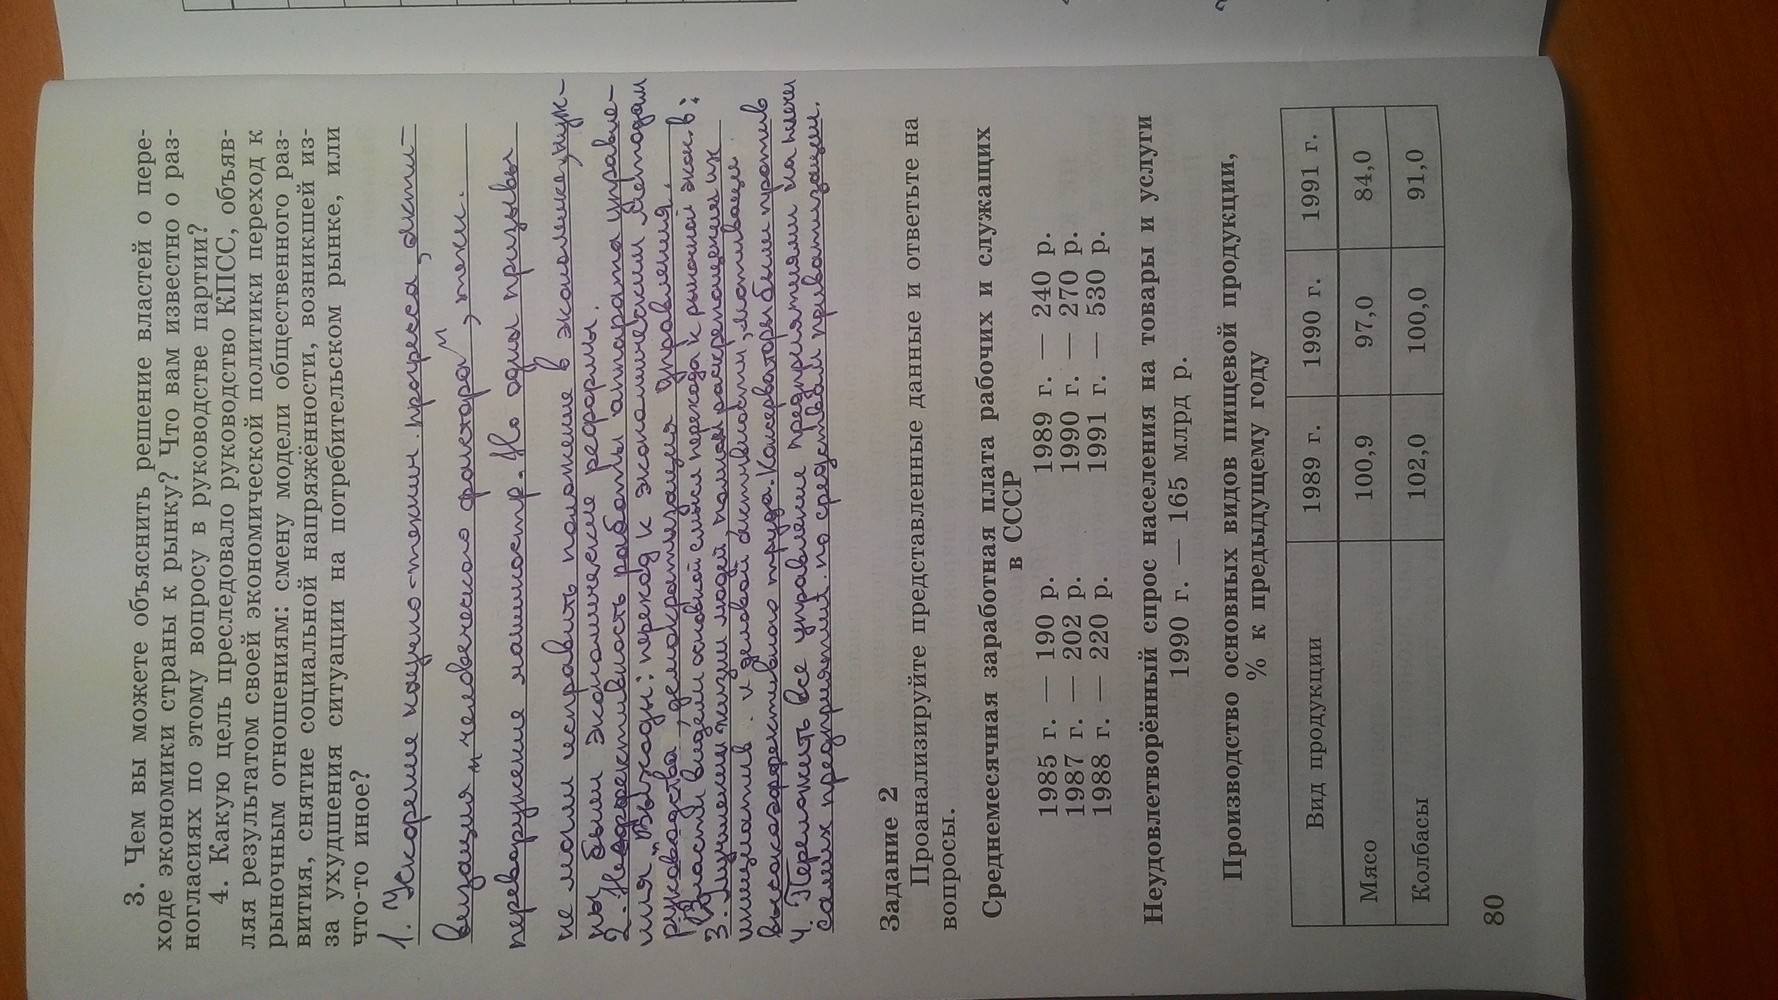 3. Чем вы можете объяснить решение властей о пере-
ходе экономики страны к рынку? Что вам известно о раз-
ногласиях по этому вопросу в руководстве партии?
4. Какую цель преследовало руководство КПСС, объяв-
ляя результатом своей экономической политики переход к
рыночным отношениям: смену модели общественного раз-
вития, снятие социальной напряжённости, возникшей из-
за ухудшения ситуации на потребительском рынке, или
что-то иное?
1. Ускорение научно-технич. прогресса, акти-
визация „человеческого фактора",
перевооружение машиностр. Но одни призывы
не могли исправить положение в экономике, нуж-
ны были экономические реформы.
2. Неэффективность работы аппарата управле-
ния. Выходы: переход к экономическим методам
руководства, демократизация управления.
3. Власти видели основной смысл перехода к рыночной экон. в:
улучшении жизни людей, полном раскрепощении их
инициатив. и деловой активности, мотивации
высокоэффективного труда. Консерваторы были против
4. Переложить все управление предприятиями на плечи
самих предприятий по средствам приватизации.
Задание 2
Проанализируйте представленные данные и ответьте на
вопросы.
Среднемесячная заработная плата рабочих и служащих
в СССР
1985 г. — 190 р. 1989 г. — 240 р.
1987 г. — 202 р. 1990 г. — 270 р.
1988 г. — 220 р. 1991 г. — 530 р.
Неудовлетворённый спрос населения на товары и услуги
1990 г. — 165 млрд р.
Производство основных видов пищевой продукции,
% к предыдущему году
Вид продукции 1989 г. 1990 г. 1991 г.
Мясо 100,9 97,0 84,0
Колбасы 102,0 100,0 91,0
80